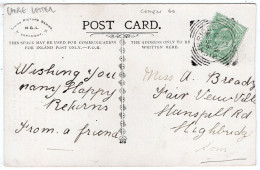 POST CARD.
THIS SPACE MAY BE USED FOR COMMUNICATIONS
FOR INLAND POST ONLY.—P.O.R.
THE ADDRESS ONLY TO BE
WRITTEN HERE.
Wishing You
many Happy
Returns
From a friend
Miss A. Bready
Fair View Villa
Huntspill Rd
Highbridge
Som